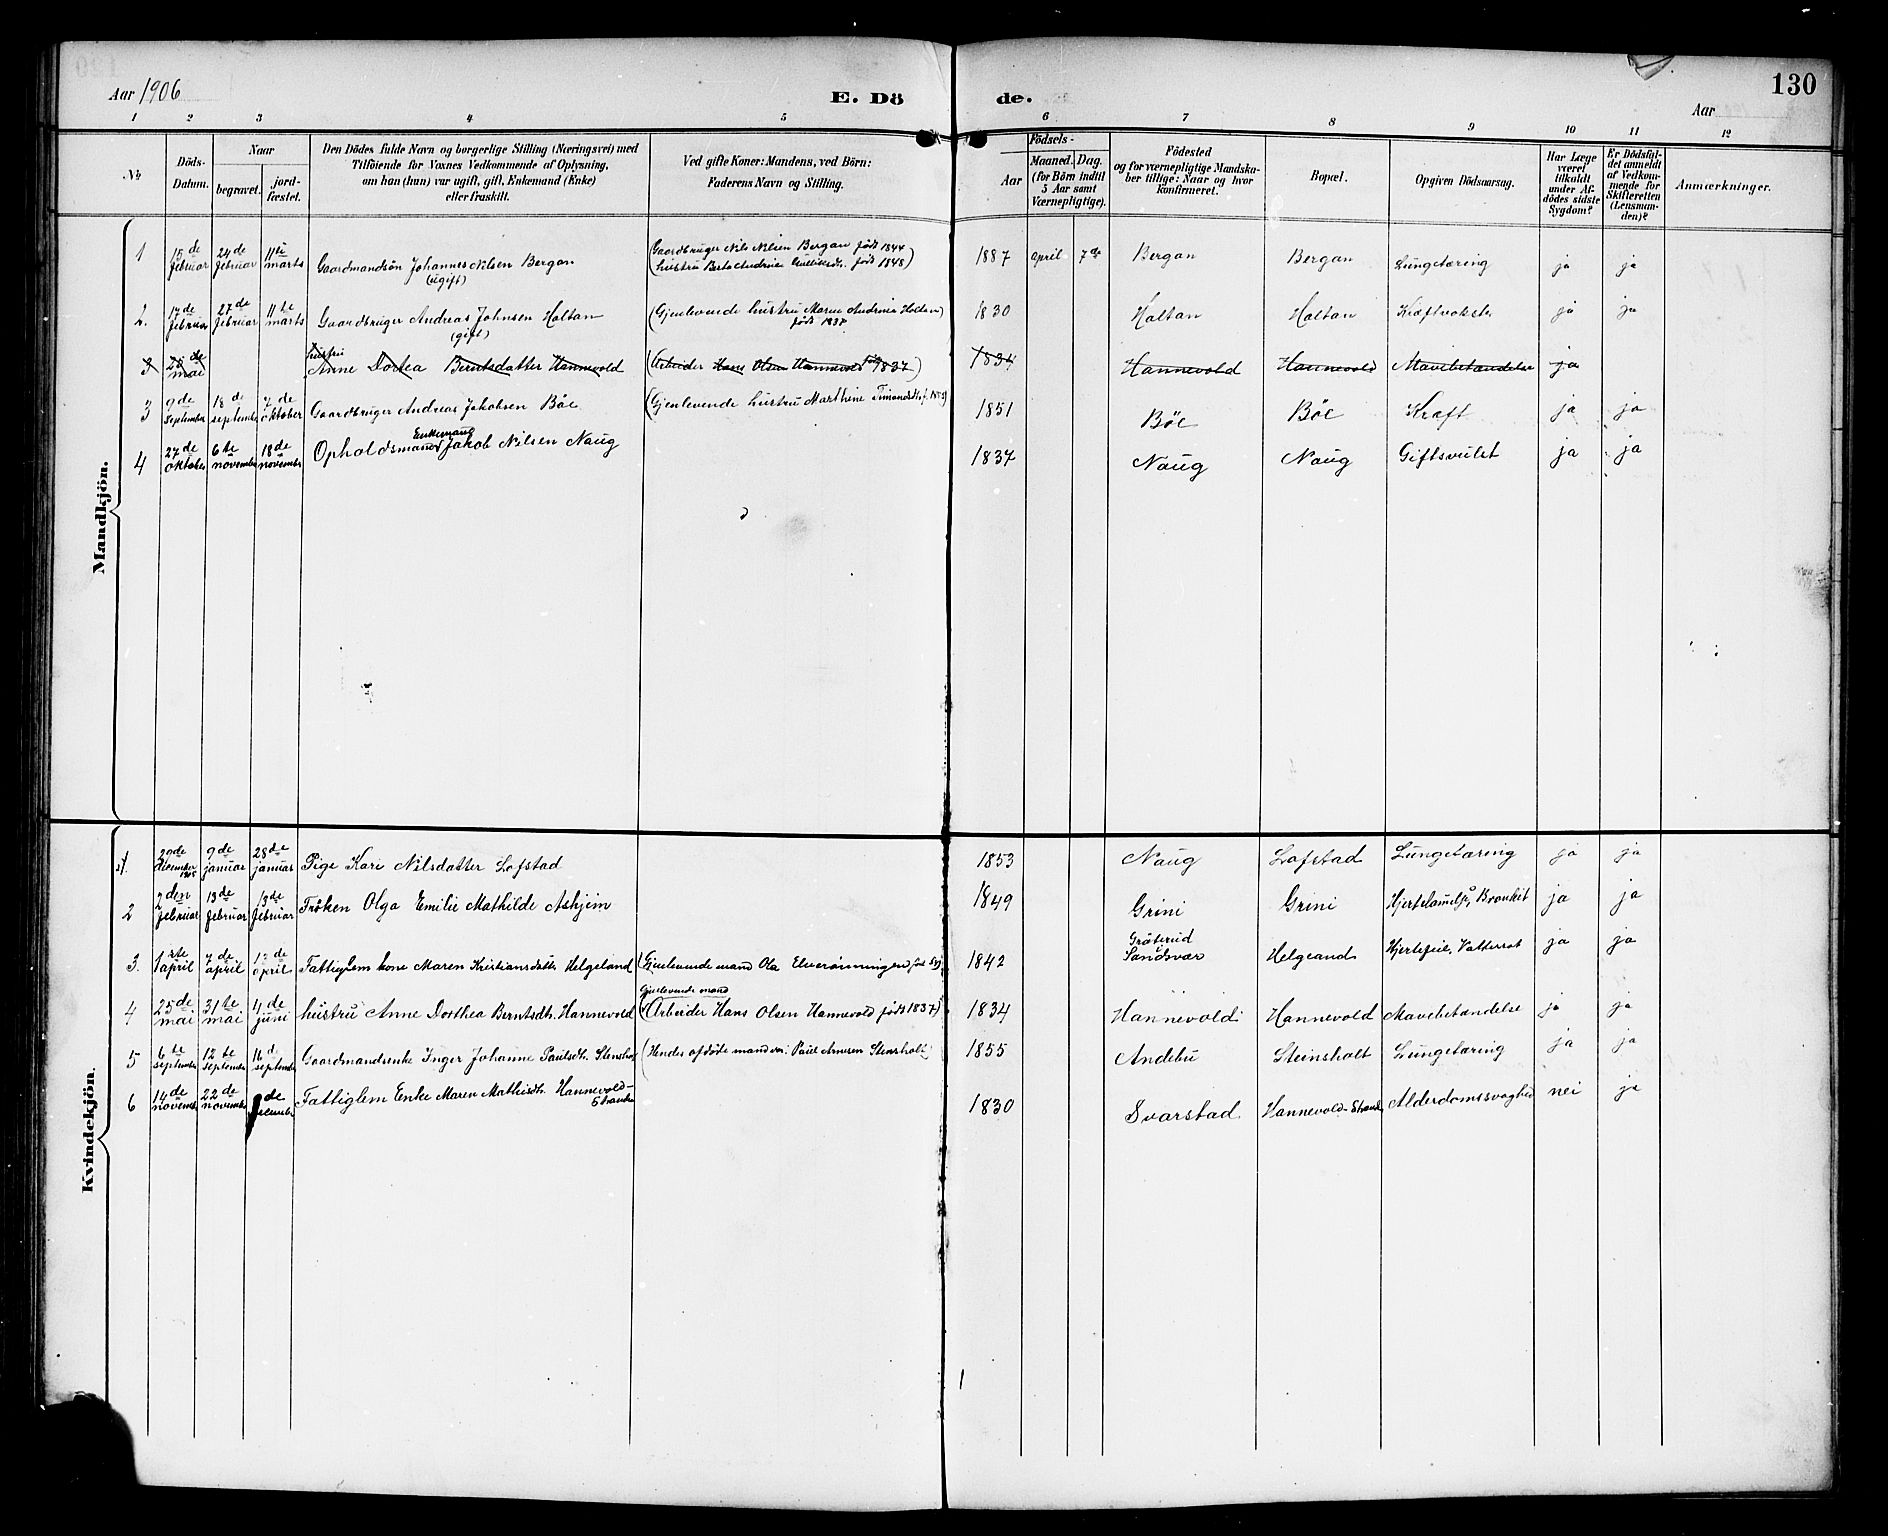 Aar 1906
E. Dö
de.
Aar
130
1 2 3 4 5 6 7 8 9 10 11 12
No
Döds-
Datum.
Naar
begravet.
jord-
fæstet.
Den Dödes fulde Navn og borgerlige Stilling (Næringsvei) med
Tilföiende for Voxnes Vedkommende af Oplysning,
om han (hun) var ugift, gift, Enkemand (Enke)
eller fraskilt.
Ved gifte Koner: Mandens, ved Börn:
Faderens Navn og Stilling.
Födsels-
Aar
Maaned. Dag.
(for Börn indtil
5 Aar samt
Værnepligtige).
Födested
og for værnepligtige Mandska-
ber tillige: Naar og hvor
konfirmeret.
Bopæl.
Opgiven Dödsaarsag.
Har Læge
været
tilkaldt
under Af-
dödes sidste
Sygdom?
Er Dödsfal-
det anmeldt
af Vedkom-
mende for
Skifteretten
(Lensman-
den)?
Anmærkninger.
Mandkjön.
1 15de februar 24de februar 11te marts Gaardmandsön Johannes Nilsen Bergan (ugift) (Gaardbruger Nils Nilsen Bergan født 1844 hustru Berte Andrine født 1848) 1887 april 7de Bergan Bergan Lungetæring ja ja
2. 17de februar 27de februar 11te marts Gaardbruger Andreas Johnsen Holtan (gift) (Gjenlevende hustru Maren Andrine Holtan) født 1838 1830 Holtan Holtan Kræftvokste ja ja
3 25de mai hustru Anne Dortea Berntsdatter Hannevold (Arbeider Hans Olsen Hannevold født 1837) 1834 Hannevold Hannevold Mavebetændelse ja
3 9de september 18de september 7de oktober Gaardbruger Andreas Jakobsen Böe (Gjenlevende hustru Marthine 1851 Böe Böe Kræft ja ja
4 27de oktober 6te november 18de november Opholdsmand Enkemand Jakob Nilsen Naug 1837 Naug Naug Giftsvulst ja ja
Kvindekjön.
1. 29de december 1905 9de januar 28de januar Pige Kari Nilsdatter Lofstad 1853 Naug Lofstad Lungetæring ja ja
2 2den februar 13de februar 13de februar Fröken Olga Emilie Mathilde Askjem 1849 Grini Grini Bronkit ja ja
3. 1ste april 7de april 12de april Fattiglem kone Maren Kristiansdatter Helgeland (Gjenlevende mand Ola Elverönningen 1842 Gråterud i Sandsvær Helgeand Hjertefeil, Vattersot ja ja
4 25de mai 31te mai 4de juni hustru Anne Dorthea Berntsdtr. Hannevold Gjenlevende mand (Arbeider Hans Olsen Hannevold født 1837) 1834 Hannevold Hannevold Mavebetændelse ja ja
5 6te september 12te september 16de september Gaardmandsenke Inger Johanne Paulsdtr. Stensholt (Hendes afdöde mand var: Paul Arnesen Stensholt) 1855 Andebu Steinsholt Lungetæring ja ja
6 14de november 22de november de Fattiglem Enke Maren Mathisdtr. Hannevold-Stranden 1830 Svarstad Hannevold-Stranden Alderdomssvaghed nei ja